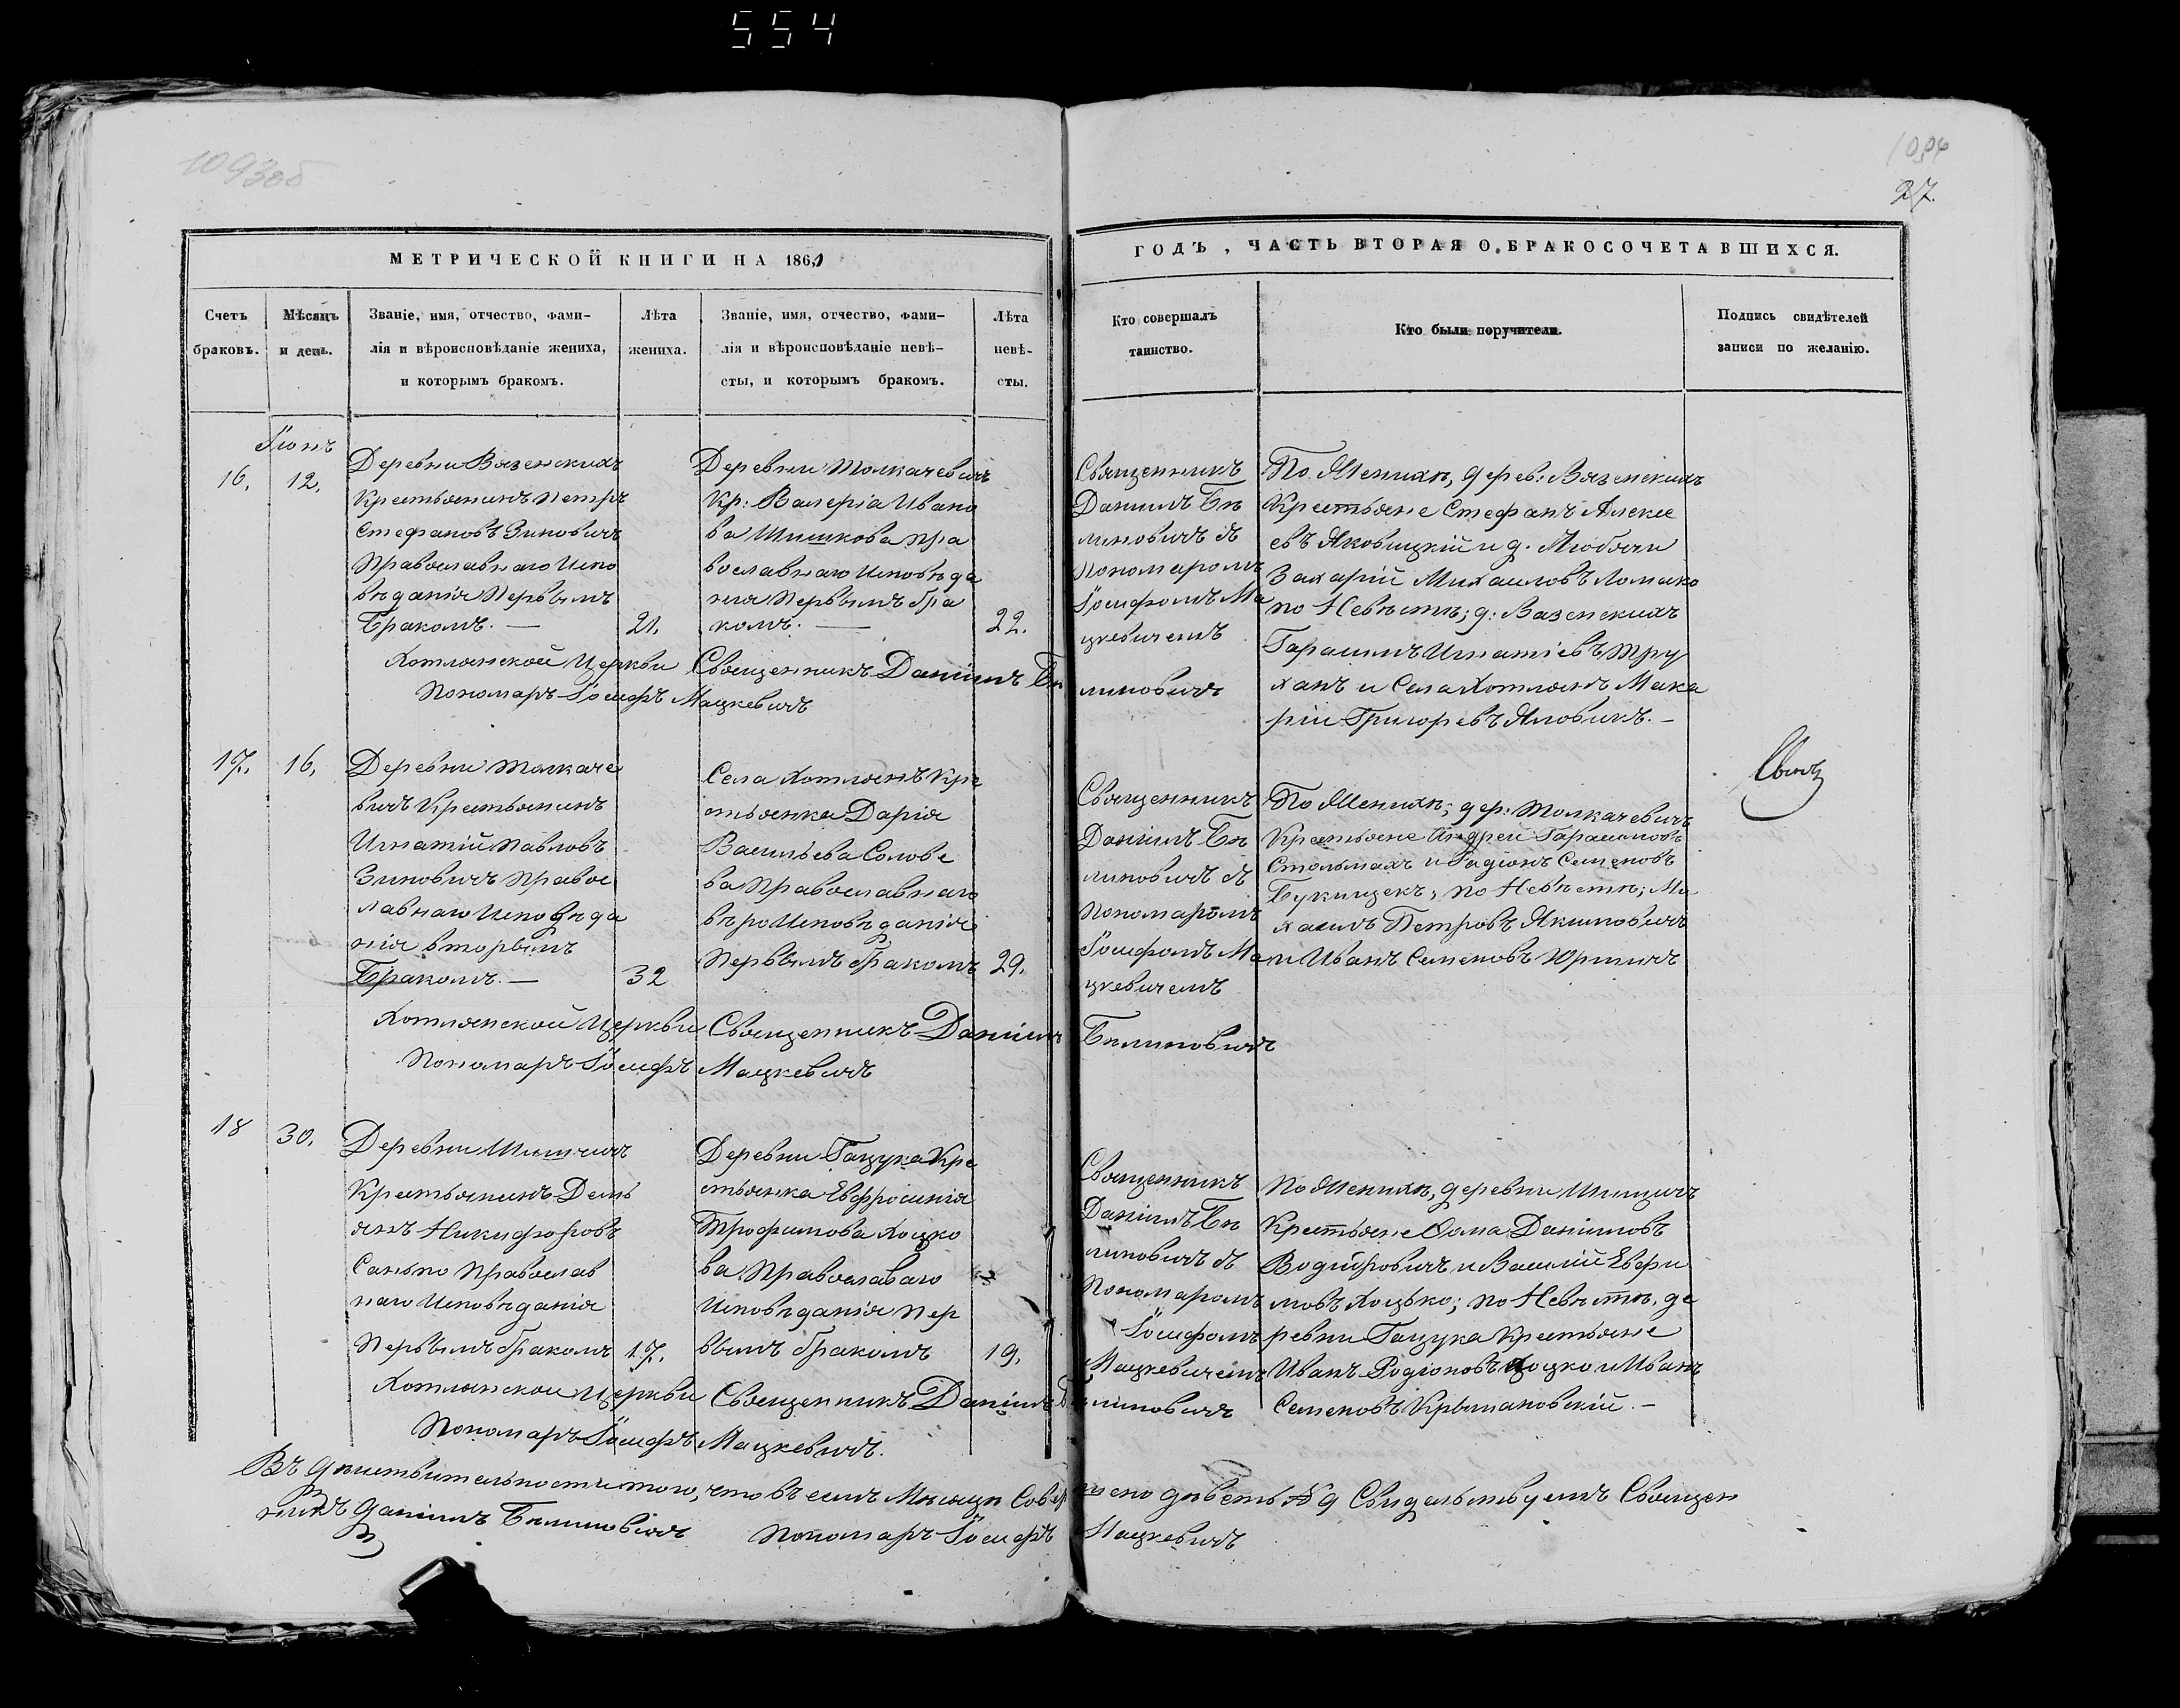 554
1093об
1094
27.
МЕТРИЧЕСКОЙ КНИГИ НА 1861
ГОДЪ, ЧАСТЬ ВТОРАЯ О БРАКОСОЧЕТАВШИХСЯ.
Счетъ браковъ.
Мѣсяцъ и день.
Званіе, имя, отчество, фами-
лія и вѣроисповѣданіе жениха,
и которымъ бракомъ.
Лѣта
жениха.
Званіе, имя, отчество, фами-
лія и вѣроисповѣданіе невѣ-
сты, и которымъ бракомъ.
Лѣта
невѣ-
сты.
Кто совершалъ
таинство.
Кто были поручители.
Подпись свидѣтелей
записи по желанію.
Іюнь
16.
12.
Деревни Вяженскихъ
Крестьянинъ Петръ
Стефановъ Зиновичъ
Православнаго Испо
вѣданія Первымъ
Бракомъ. —
21.
Деревни Толкачевичъ
Кр: Валерія Ивано
ва Шишкова пра
вославнаго Исповѣда
нія Первымъ бра
комъ. —
22.
Священникъ
Даніилъ Бѣ
линовичъ съ
Пономаромъ
Іосифомъ Ма
цкевичемъ
По Женихѣ, дерев: Вяженскихъ
Крестьяне Стефанъ Алексе
евъ Яковицкій и д. Любячи
Захарій Михаиловъ Ломако
по Невѣстѣ; д: Вяженскихъ
Гарасимъ Игнатіевъ Тру
ханъ и Села Хотлянъ Мака
рій Григоревъ Яловикъ. —
Хотлянской Церкви Священникъ Даніилъ Бѣлиновичъ
Пономаръ Іосифъ Мацкевичъ
17.
16.
Деревни Толкаче
вичъ Крестьянинъ
Игнатій Павловъ
Зиновичъ Правос
лавнаго Исповѣда
нія вторымъ
Бракомъ. —
32
Села Хотлянъ Кре
стьянка Дарія
Васильева Солове
ва Православнаго
вѣроИсповѣданія
Первымъ бракомъ
29.
Священникъ
Даніилъ Бѣ
линовичъ съ
Пономаромъ
Іосифомъ Ма
цкевичемъ
По Женихѣ; дер: Толкачевичъ
Крестьяне Андрей Гарасимовъ
Стольмахъ и Радіонъ Семеновъ
по Невѣстѣ; Ми
хаилъ Петровъ Якимовичъ
и Иванъ Семеновъ
Хотлянской Церкви Священникъ Даніилъ Бѣлиновичъ
Пономаръ Іосифъ Мацкевичъ
18
30.
Деревни Шищичъ
Крестьянинъ Демь
янъ Никифоровъ
Санько Православ
наго Исповѣданія
Первымъ бракомъ
17.
Деревни Гацука Кре
стьянка Евфросинія
Трофимова Хоцко
ва Православаго
Исповѣданія Пер
вымъ бракомъ
19.
Священникъ
Даніилъ Бѣ
линовичъ съ
Пономаромъ
Іосифомъ
Мацкевичемъ
По Женихѣ, деревни Шищичъ
Крестьяне Ѳома Даніиловъ
и Василій Евфи
мовъ Хоцько; по Невѣстѣ, де
ревни Гацука Крестьяне
Иванъ Родіоновъ Хоцко и Иванъ
Семеновъ
Хотлянской Церкви Священникъ Даніилъ Бѣлиновичъ
Пономаръ Іосифъ Мацкевичъ.
Въ дѣйствительности того, что въ семъ Мѣсяцѣ Совершено девять № 9 Свидельствуемъ Священ
никъ Даніилъ Бѣлиновичъ Пономаръ Іосифъ Мацкевичъ